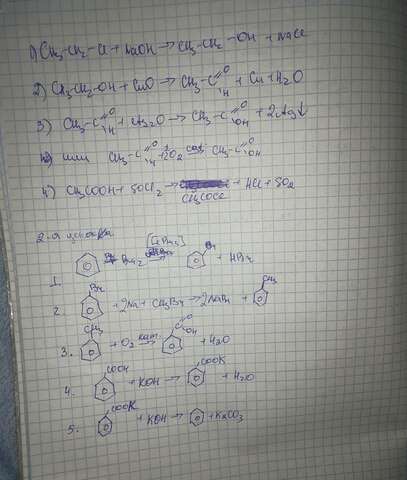 1) CH3-CH2-Cl + NaOH → CH3-CH2-OH + NaCl
2) CH3-CH2-OH + CuO → CH3-C(=O)H + Cu + H2O
3) CH3-C(=O)H + Ag2O → CH3-C(=O)OH + 2Ag↓
или CH3-C(=O)H + O2 → CH3-C(=O)OH
4) CH3COOH + SOCl2 → CH3COCl + HCl + SO2
2-я
[FeBr3]
1. + Br2 → Br + HBr
2. Br + 2Na + CH3Br → 2NaBr + CH3
3. CH3 + O2 кат. → C(=O)OH + H2O
4. COOH + KOH → COOK + H2O
5. COOK + KOH → + K2CO3